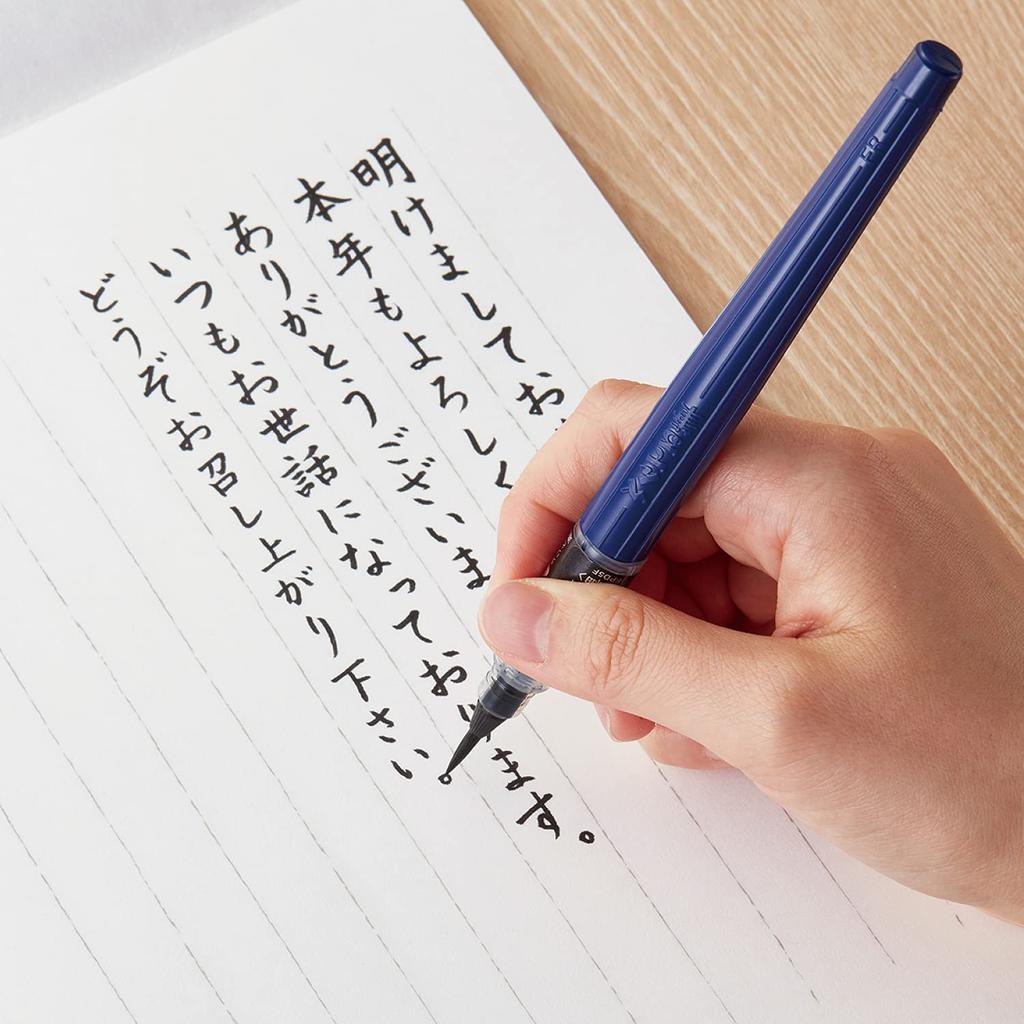 明けましてお
本年もよろしく
ありがとうございま
いつもお世話になっており ます。
どうぞお召し上がり下さい。